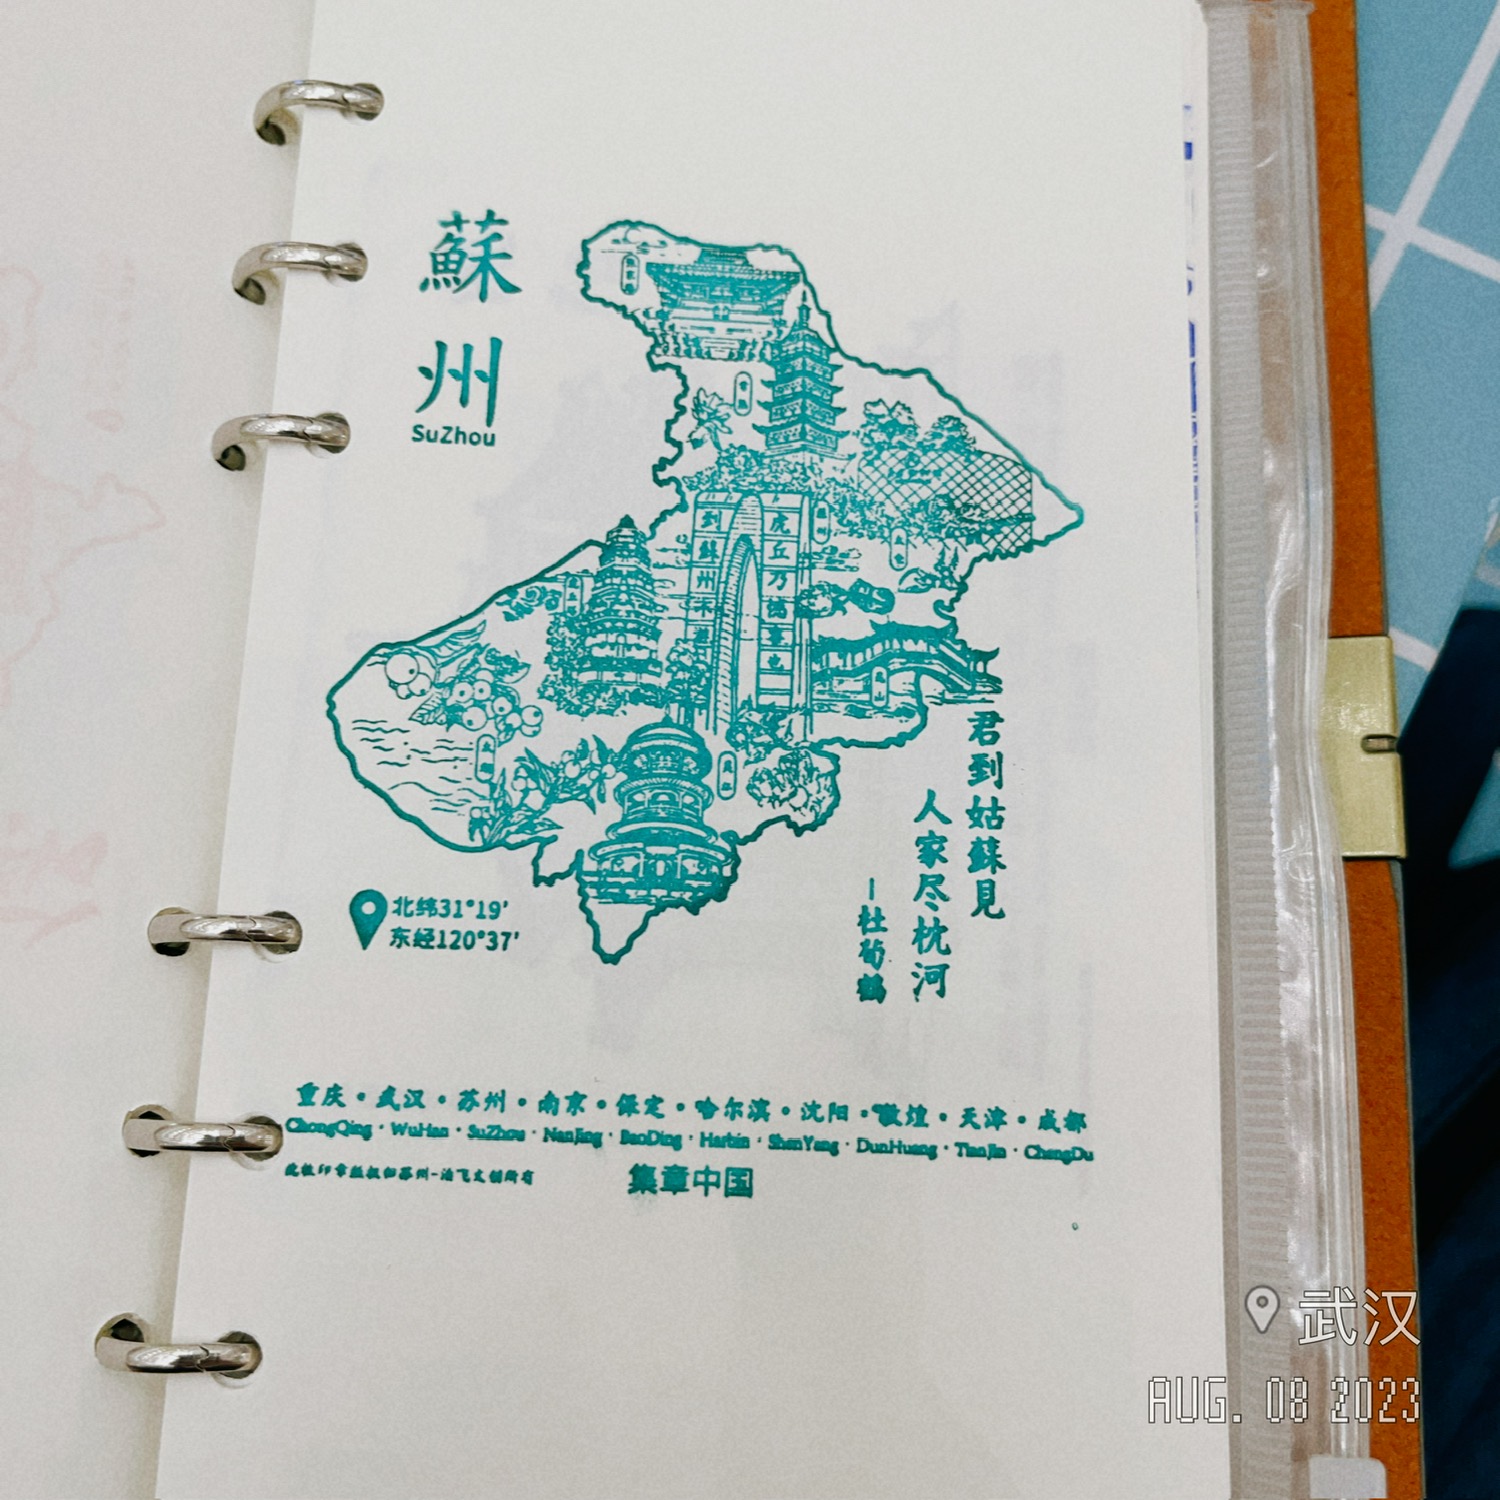 蘇
州
SuZhou
到蘇州不
虎丘乃憾事也
君到姑蘇見
人家尽枕河
—杜荀鹤
北纬31°19'
东经120°37'
重庆·武汉·苏州·南京·保定·哈尔滨·沈阳·敦煌·天津·成都
ChongQing · WuHan · SuZhou · NanJing · BaoDing · Harbin · ShenYang · DunHuang · TianJin · ChengDu
此枚印章版权归苏州-泊飞文创所有
集章中国
武汉
AUG. 08 2023